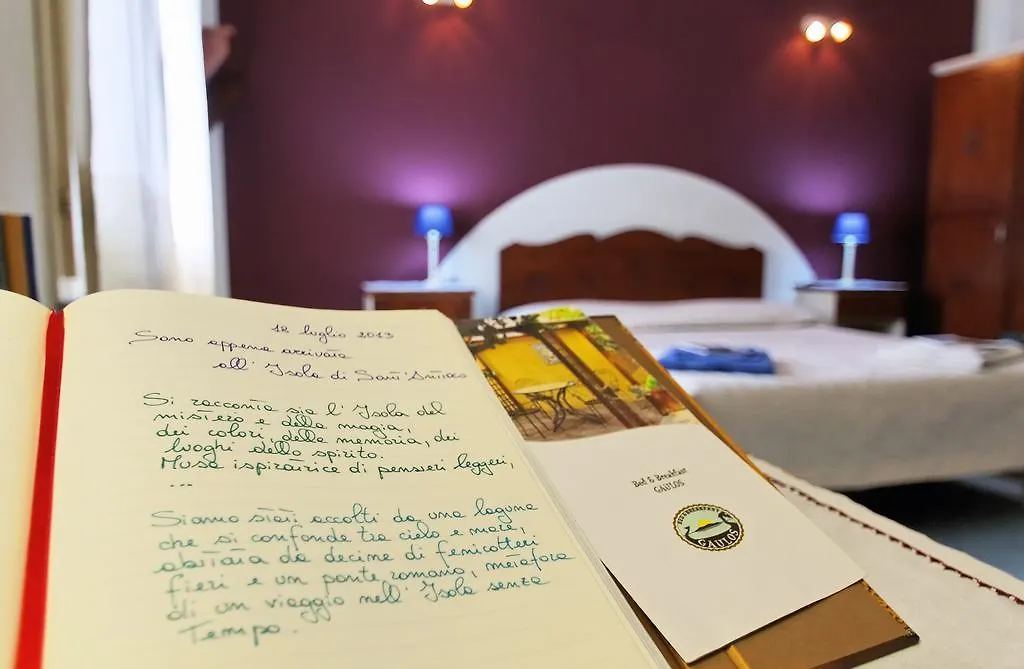 12 luglio 2013
Sono appena arrivata
all' Isola di Sant'Antioco
Si racconta sia l' Isola del
mistero e della magia,
dei colori della memoria, dei
luoghi dello spirito.
Musa ispiratrice di pensieri leggeri,
...
Siamo stati accolti da una laguna
che si confonde tra cielo e mare,
abitata da decine di fenicotteri
fieri e un ponte romano, metafora
di un viaggio nell' Isola senza
Tempo.
Bed & Breakfast
GAULOS
GAULOS